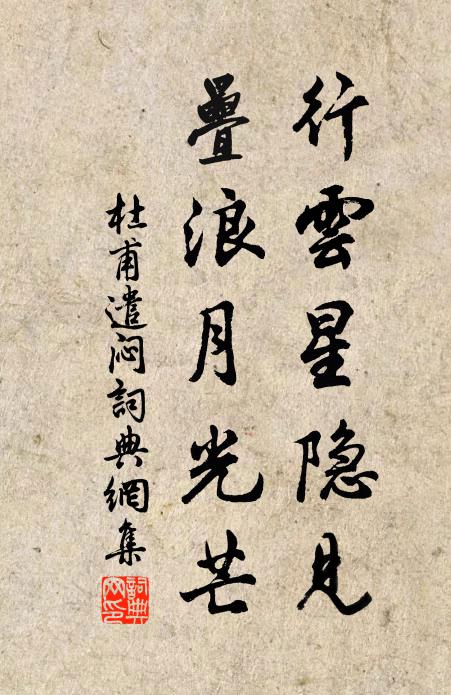 行雲星隐見
疊浪月光芒
杜甫遣闷詞典網集
詞典网印